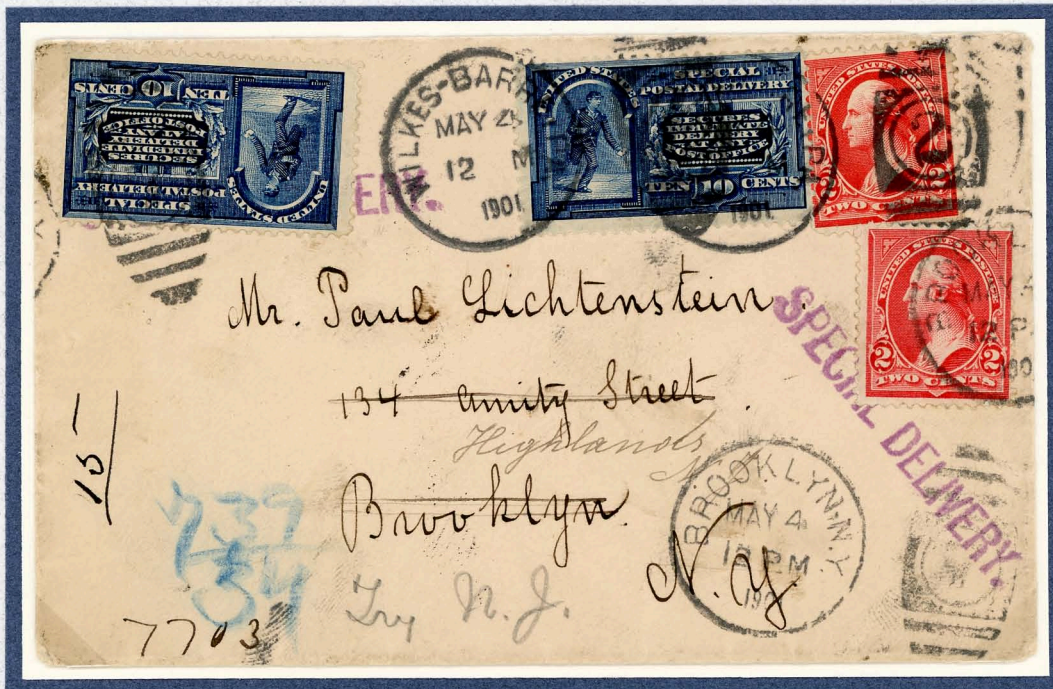 UNITED STATES
SPECIAL
POSTAL DELIVERY
SECURES
IMMEDIATE
DELIVERY
AT ANY
POST OFFICE
TEN 10 CENTS
WILKES-BARR
MAY 4
12 M
1901
UNITED STATES
SPECIAL
POSTAL DELIVERY
SECURES
IMMEDIATE
DELIVERY
AT ANY
POST OFFICE
TEN 10 CENTS
1901
UNITED STATES POSTAGE
2 2
TWO CENTS
ERY.
UNITED STATES POSTAGE
2 2
TWO CENTS
Mr. Paul Lichtenstein.
SPECIAL DELIVERY.
134 Amity Street.
Highlands
Brooklyn.
N.Y
BROOKLYN, N.Y.
MAY 4
12 PM
190
Try N.J.
15
739
34
7703